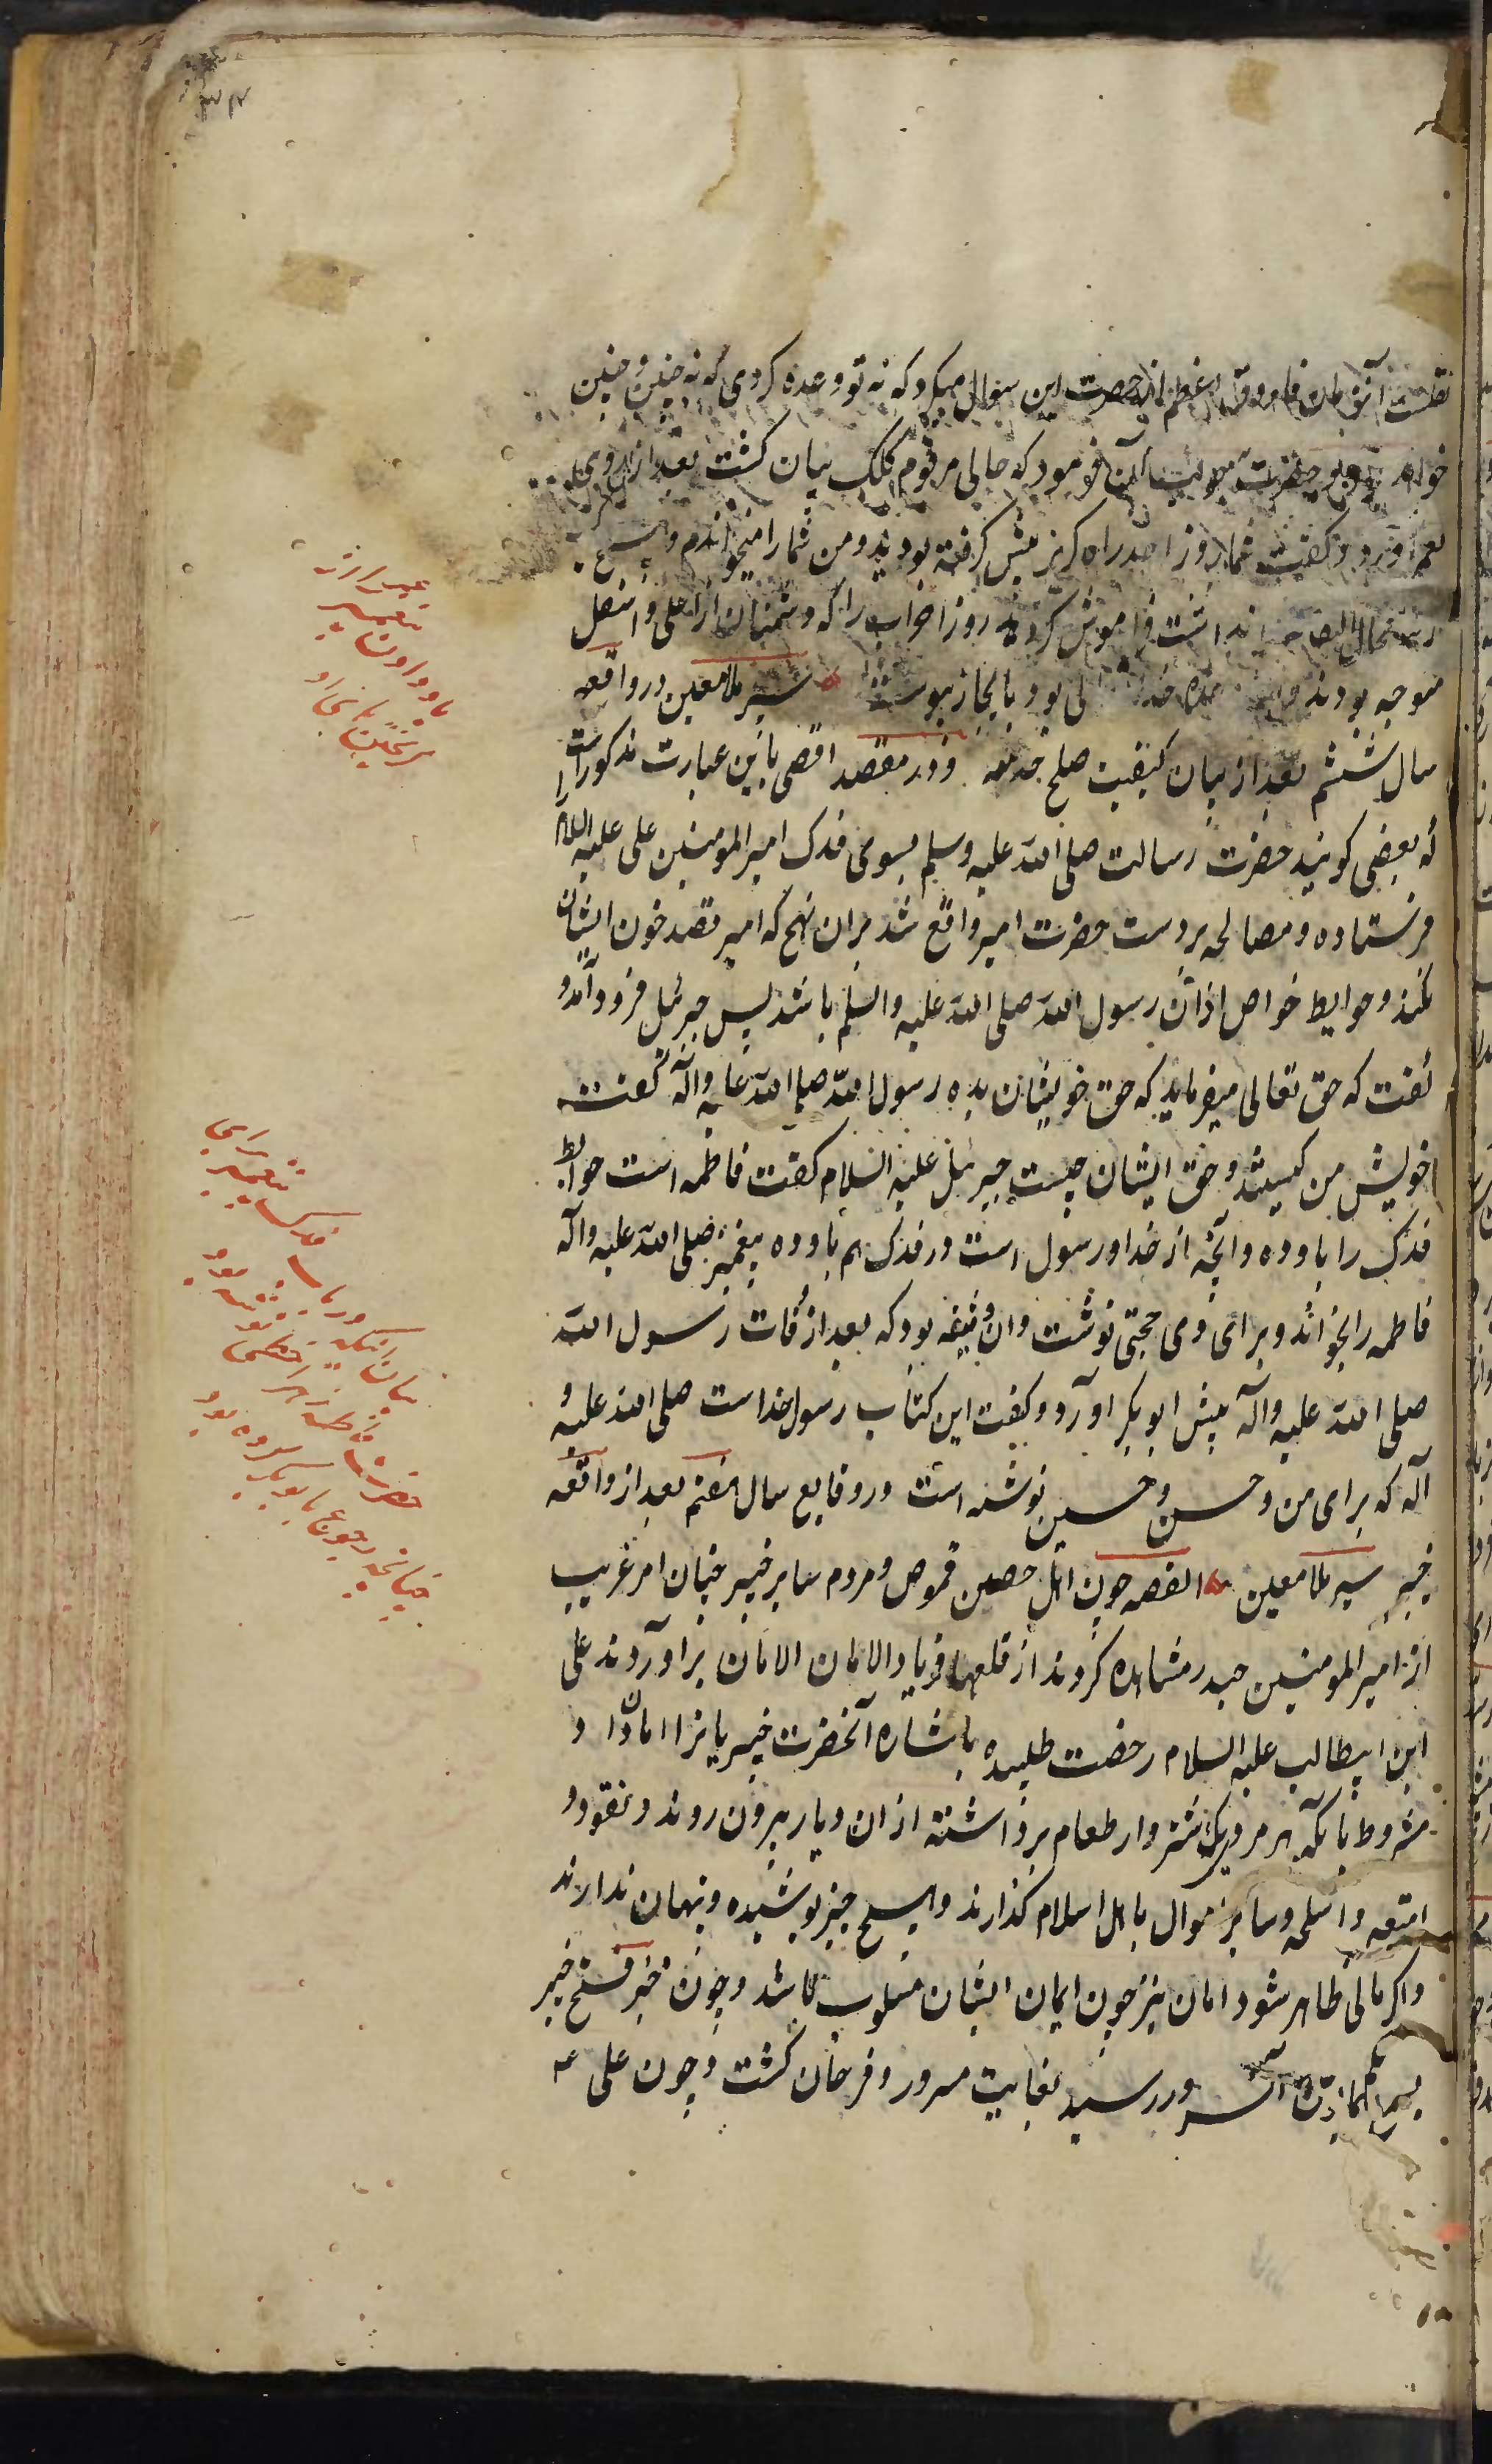 ۳۴
نقلست آنزمان فاروق اعظم از حضرت این سوال میکرد که نه تو وعده کردی که نه چنین و چنین
خواهد حضرت جواب آن فرمود که حالی مرقوم کلک بیان کشت بعد از آن روی
بعمر آورد و کفت شما روز احد راه کریز پیش کرفته بودید و من شما را میخواندم و هیچ
نداشت فراموش کردید روز احزاب را که دشمنان از اعلی و اسفل
متوجه بودند بود بانجاز پیوست سیر ملا معین در واقعه
سال ششم بعد از بیان کیفیت صلح و در مقصد اقصی باین عبارت مذکور است
که بعضی کویند حضرت رسالت صلی الله علیه وسلم بسوی فدک امیرالمومنین علی علیه السلام را
فرستاده و مصالحه بر دست حضرت امیر واقع شد بران نهج که امیر قصد خون ایشان
نکند و حوایط خواص از آن رسول الله صلی الله علیه واله وسلم باشد پس جبرئیل فرود آمد و
کفت که حق تعالی میفرماید که حق خویشان بده رسول الله صلی الله علیه وآله کفت
خویش من کیستند و حق ایشان چیست جبرئیل علیه السلام کفت فاطمه است حوایط
فدک را باو ده و آنچه از خدا و رسول است در فدک هم باو ده پیغمبر صلی الله علیه وآله
فاطمه را بخواند و برای وی حجتی نوشت و ان وثیقه بود که بعد از وفات رسول الله
صلی الله علیه وآله پیش ابوبکر آورد و کفت این کتاب رسول خداست صلی الله علیه و
آله که برای من و حسن و حسین نوشته است و در وقایع سال هفتم بعد از واقعه
خیبر سیر ملا معین القصه چون اهل حصین قموص و مردم سایر خیبر چنان امر غریب
از امیرالمومنین حیدر مشاهده کردند از قلعها فریاد الامان الامان برآوردند علی
ابن ابیطالب علیه السلام رخصت طلبیده باشاره آنحضرت خیبریانرا امان داد
مشروط بآنکه هر مردی یک شتر وار طعام برداشته از ان دیار بیرون روند و نقود و
امتعه و اسلحه و سایر اموال باهل اسلام کذارند و هیچ چیز پوشیده و پنهان ندارند
و اکر مالی ظاهر شود امان نیز چون ایمان ایشان مسلوب باشد و چون خبر فتح خیبر
آن سرور رسید بغایت مسرور و فرحان کشت و چون علی ع
بیان اینکه در باب فدک پیغمبر برای
حضرت فاطمه زهرا خطی نوشته بود
چنانچه رجوع بابوبکر کرده بود